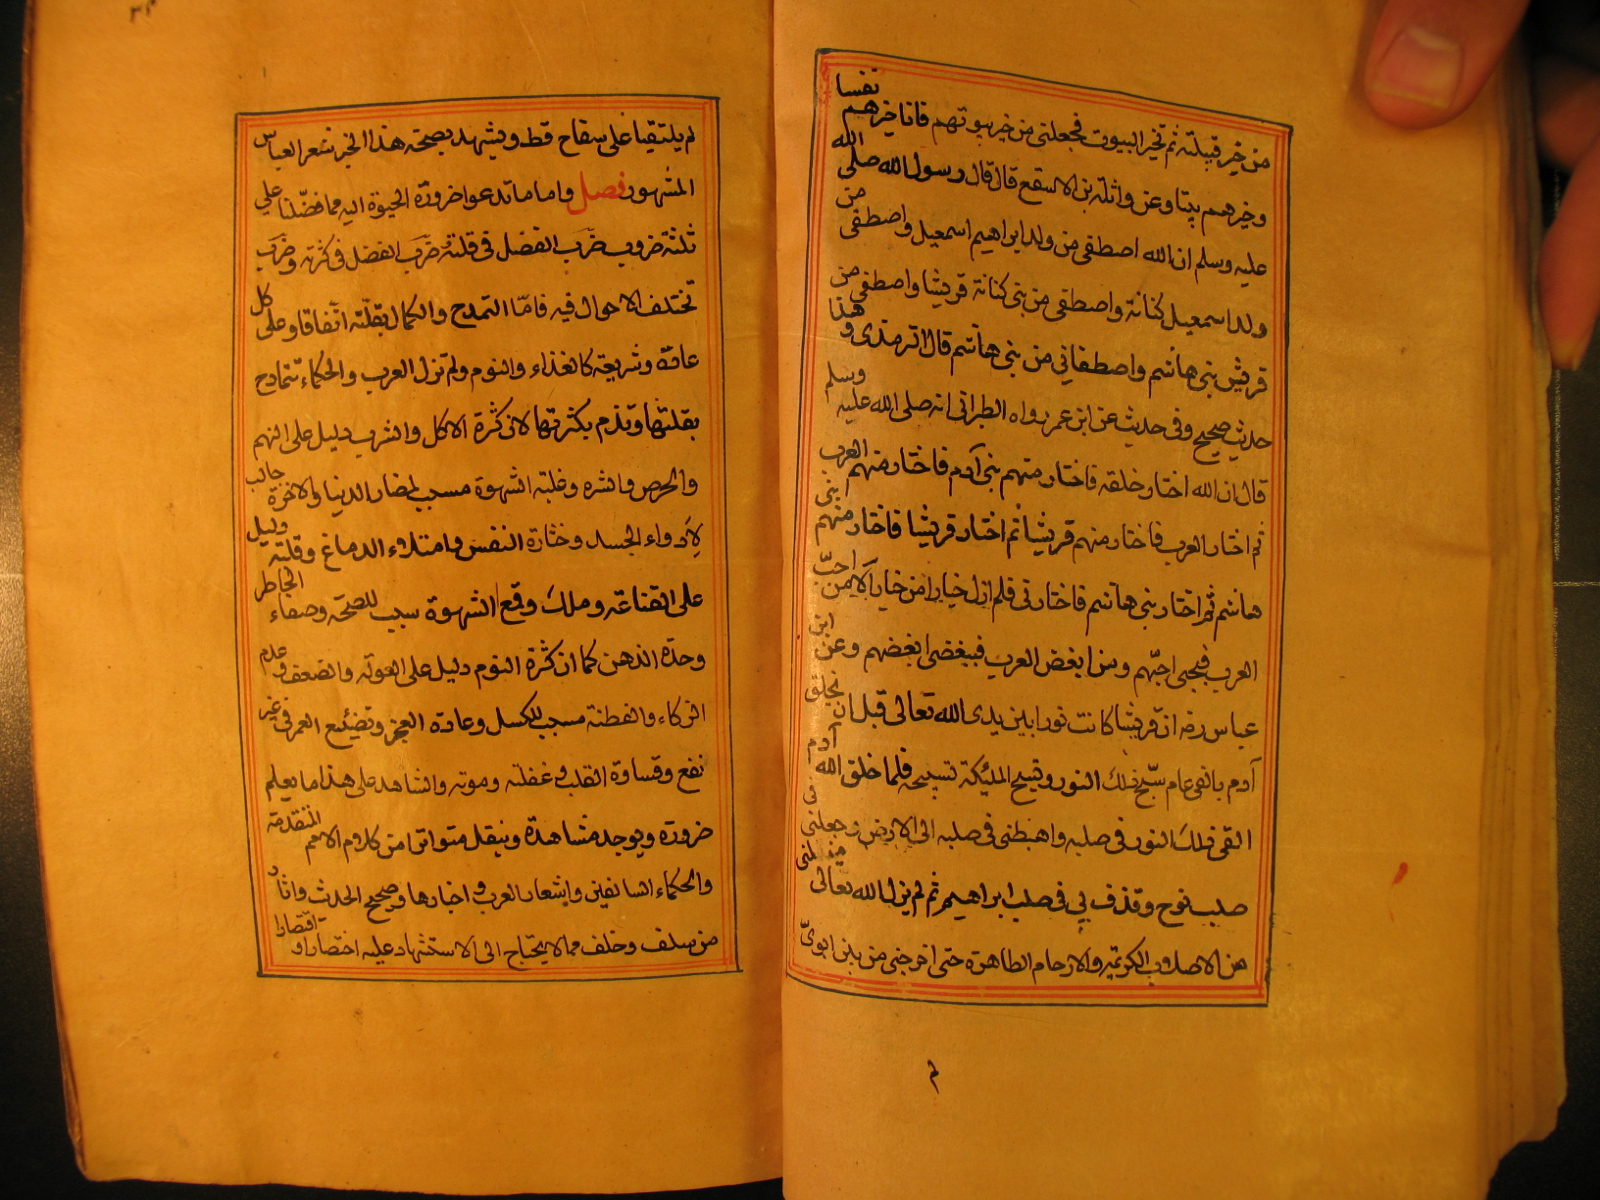 من خير قبيلة ثم تخير البيوت فجعلنى من خير بيوتهم فانا خيرهم نفسا
وخيرهم بيتا وعن واثلة بن الاسقع قال قال رسول الله صلى الله
عليه وسلم ان الله اصطفى من ولد ابراهيم اسمعيل واصطفى من
ولد اسمعيل كنانة واصطفى من بنى كنانة قريشا واصطفى من
قريش بنى هاشم واصطفانى من بنى هاشم قال الترمذى وهذا
حديث صحيح وفى حديث عن ابن عمر رواه الطبرانى انه صلى الله عليه وسلم
قال ان الله اختار خلقه فاختار منهم بنى آدم فاختار منهم العرب
ثم اختار العرب فاختار منهم قريشا ثم اختار قريشا فاختار منهم بنى
هاشم ثم اختار بنى هاشم فاختارنى فلم ازل خيارا من خيار الا من احبّ
العرب فبحبى احبّهم ومن ابغض العرب فببغضى ابغضهم وعن ابن
عباس رضه ان قريشا كانت نورا بين يدى الله تعالى قبل ان يخلق
آدم بالفى عام سبّح ذلك النور وتسبح الملئكة تسبيحه فلما خلق الله آدم
القى ذلك النور فى صلبه واهبطنى فى صلبه الى الارض وجعلنى فى
صلب نوح وقذف بى فى صلب ابراهيم ثم لم يزل الله تعالى ينقلنى
من الاصلاب الكريمة والارحام الطاهرة حتى اخرجنى من بين ابوىّ
لم
لم يلتقيا على سفاح قط ويشهد بصحة هذا الخبر شعر العباس
المشهور فصل واما ما تدعوا ضرورة الحيوة اليه مما فضّلنا على
ثلثة ضروب ضرب الفضل فى قلته وضرب الفضل فى كثرته وضرب
تختلف الاحوال فيه فامّا التمدح والكمال بقلّته اتّفاقا وعلى كل
عادة وشريعة كالغذاء والنوم ولم تزل العرب والحكماء تتمادح
بقلتها وتذم بكثرتها لان كثرة الاكل والشرب دليل على النهم
والحرص والشره وغلبة الشهوة مسبب لمضار الدنيا والاخرة جالب
لادواء الجسد وخثارة النفس وامتلاء الدماغ وقلته دليل
على القناعة وملك وقمع الشهوة سبب للصحة وصفاء الخاطر
وحدة الذهن كما ان كثرة النوم دليل على الفولة والضعف وعدم
الذكاء والفطنة مسبب للكسل وعادة العجز وتضييع العمر فى غير
نفع وقساوة القلب وغفلته وموته والشاهد على هذا ما يعلم
ضرورة ويوجد مشاهدة وينقل متواترا من كلام الامم المتقدمة
والحكماء السالفين واشعار العرب واخبارها وصحيح الحديث واثار
من سلف وخلف مما لا يحتاج الى الاستشهاد عليه اختصارا واقتصارا